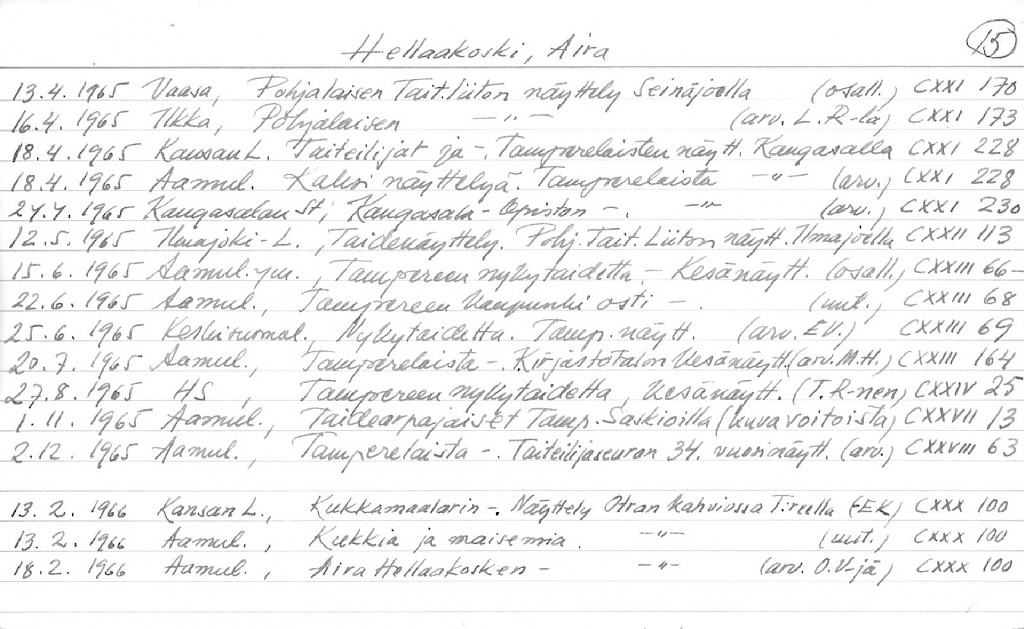 15
Hellaakoski, Aira
13.4. 1965 Vaasa, Pohjalaisen Tait.liiton näyttely Seinäjoella (osall.) CXXI 170
16.4. 1965 Ilkka, Pohjalaisen -"- (arv. L.R-la) CXXI 173
18.4. 1965 Kansan L. Taiteilijat ja -. Tamperelaisten näytt. Kangasalla CXXI 228
18.4. 1965 Aamul. Kaksi näyttelyä. Tamperelaista -"- (arv.) CXXI 228
27.4. 1965 Kangasalan St; Kangasala-Opiston -. -"- (arv.) CXXI 230
12.5. 1965 Ilmajoki-L., Taidenäyttely. Pohj. Tait. Liiton näytt. Ilmajoella CXXII 113
15.6. 1965 Aamul. ym., Tampereen nykytaidetta - Kesänäytt. (osall.) CXXIII 66-
22.6. 1965 Aamul., Tampereen kaupunki osti -. (uut.) CXXIII 68
25.6. 1965 Keskisuomal., Nykytaidetta. Tamp. näytt. (arv. EV.) CXXIII 69
20.7. 1965 Aamul., Tamperelaista -. Kirjastotalon Kesänäytt. (arv. M.H.) CXXIII 164
27.8. 1965 HS, Tampereen nykytaidetta, kesänäytt. (T.R-nen) CXXIV 25
1.11. 1965 Aamul., Taidearpajaiset Tamp. Saskioilla (kuva voitoista) CXXVII 13
2.12. 1965 Aamul., Tamperelaista -. Taiteilijaseuran 34. vuosinäytt. (arv.) CXXVIII 63
13.2. 1966 Kansan L., Kukkamaalarin -. Näyttely Otran kahviossa T:reella (-EK) CXXX 100
13.2. 1966 Aamul., Kukkia ja maisemia. -"- (uut.) CXXX 100
18.2. 1966 Aamul., Aira Hellaakosken - -"- (arv. O.V-jä) CXXX 100